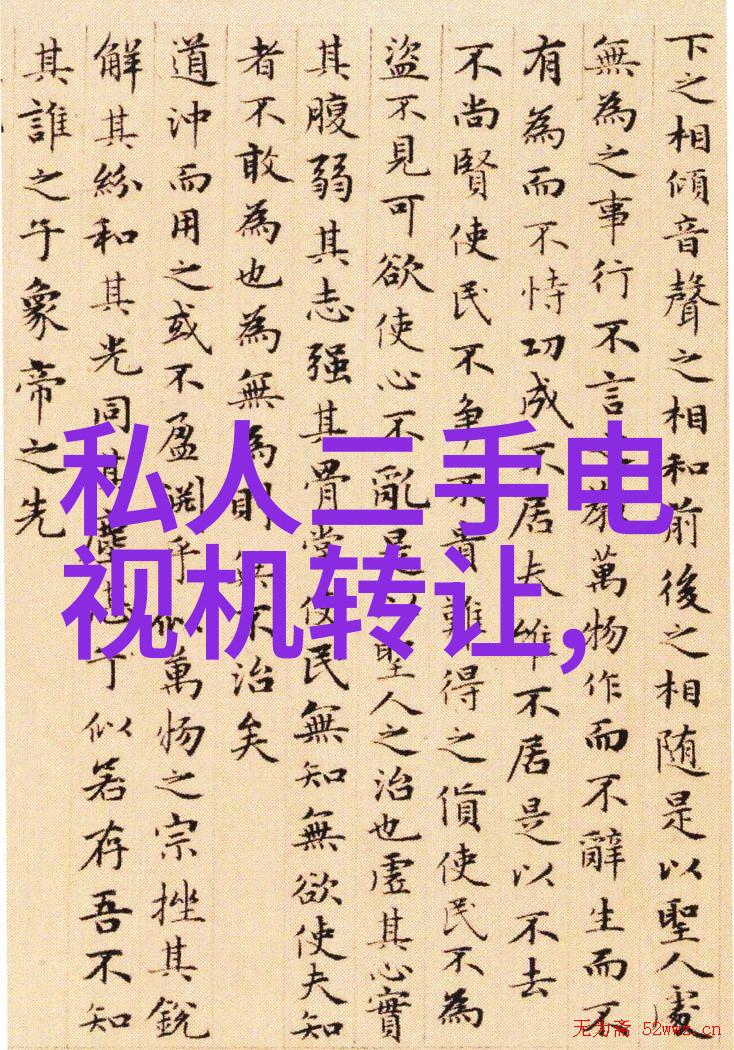 下之相傾音聲之相和前後之相随是以聖人處
無為之事行不言之教萬物作而不辭生而不
有為而不恃功成不居夫維不居是以不去
不尚賢使民不争不貴難得之貨使民不為
盜不見可欲使心不亂是以聖人之治也虛其心實
其腹弱其志强其骨常使民無知無欲使夫知
者不敢為也為無為則無不治矣
道沖而用之或不盈淵乎似萬物之宗挫其銳
解其紛和其光同其塵湛乎似若存吾不知
其誰之子象帝之先
私人二手电
视机转让,
无为斋 52wwz.cn